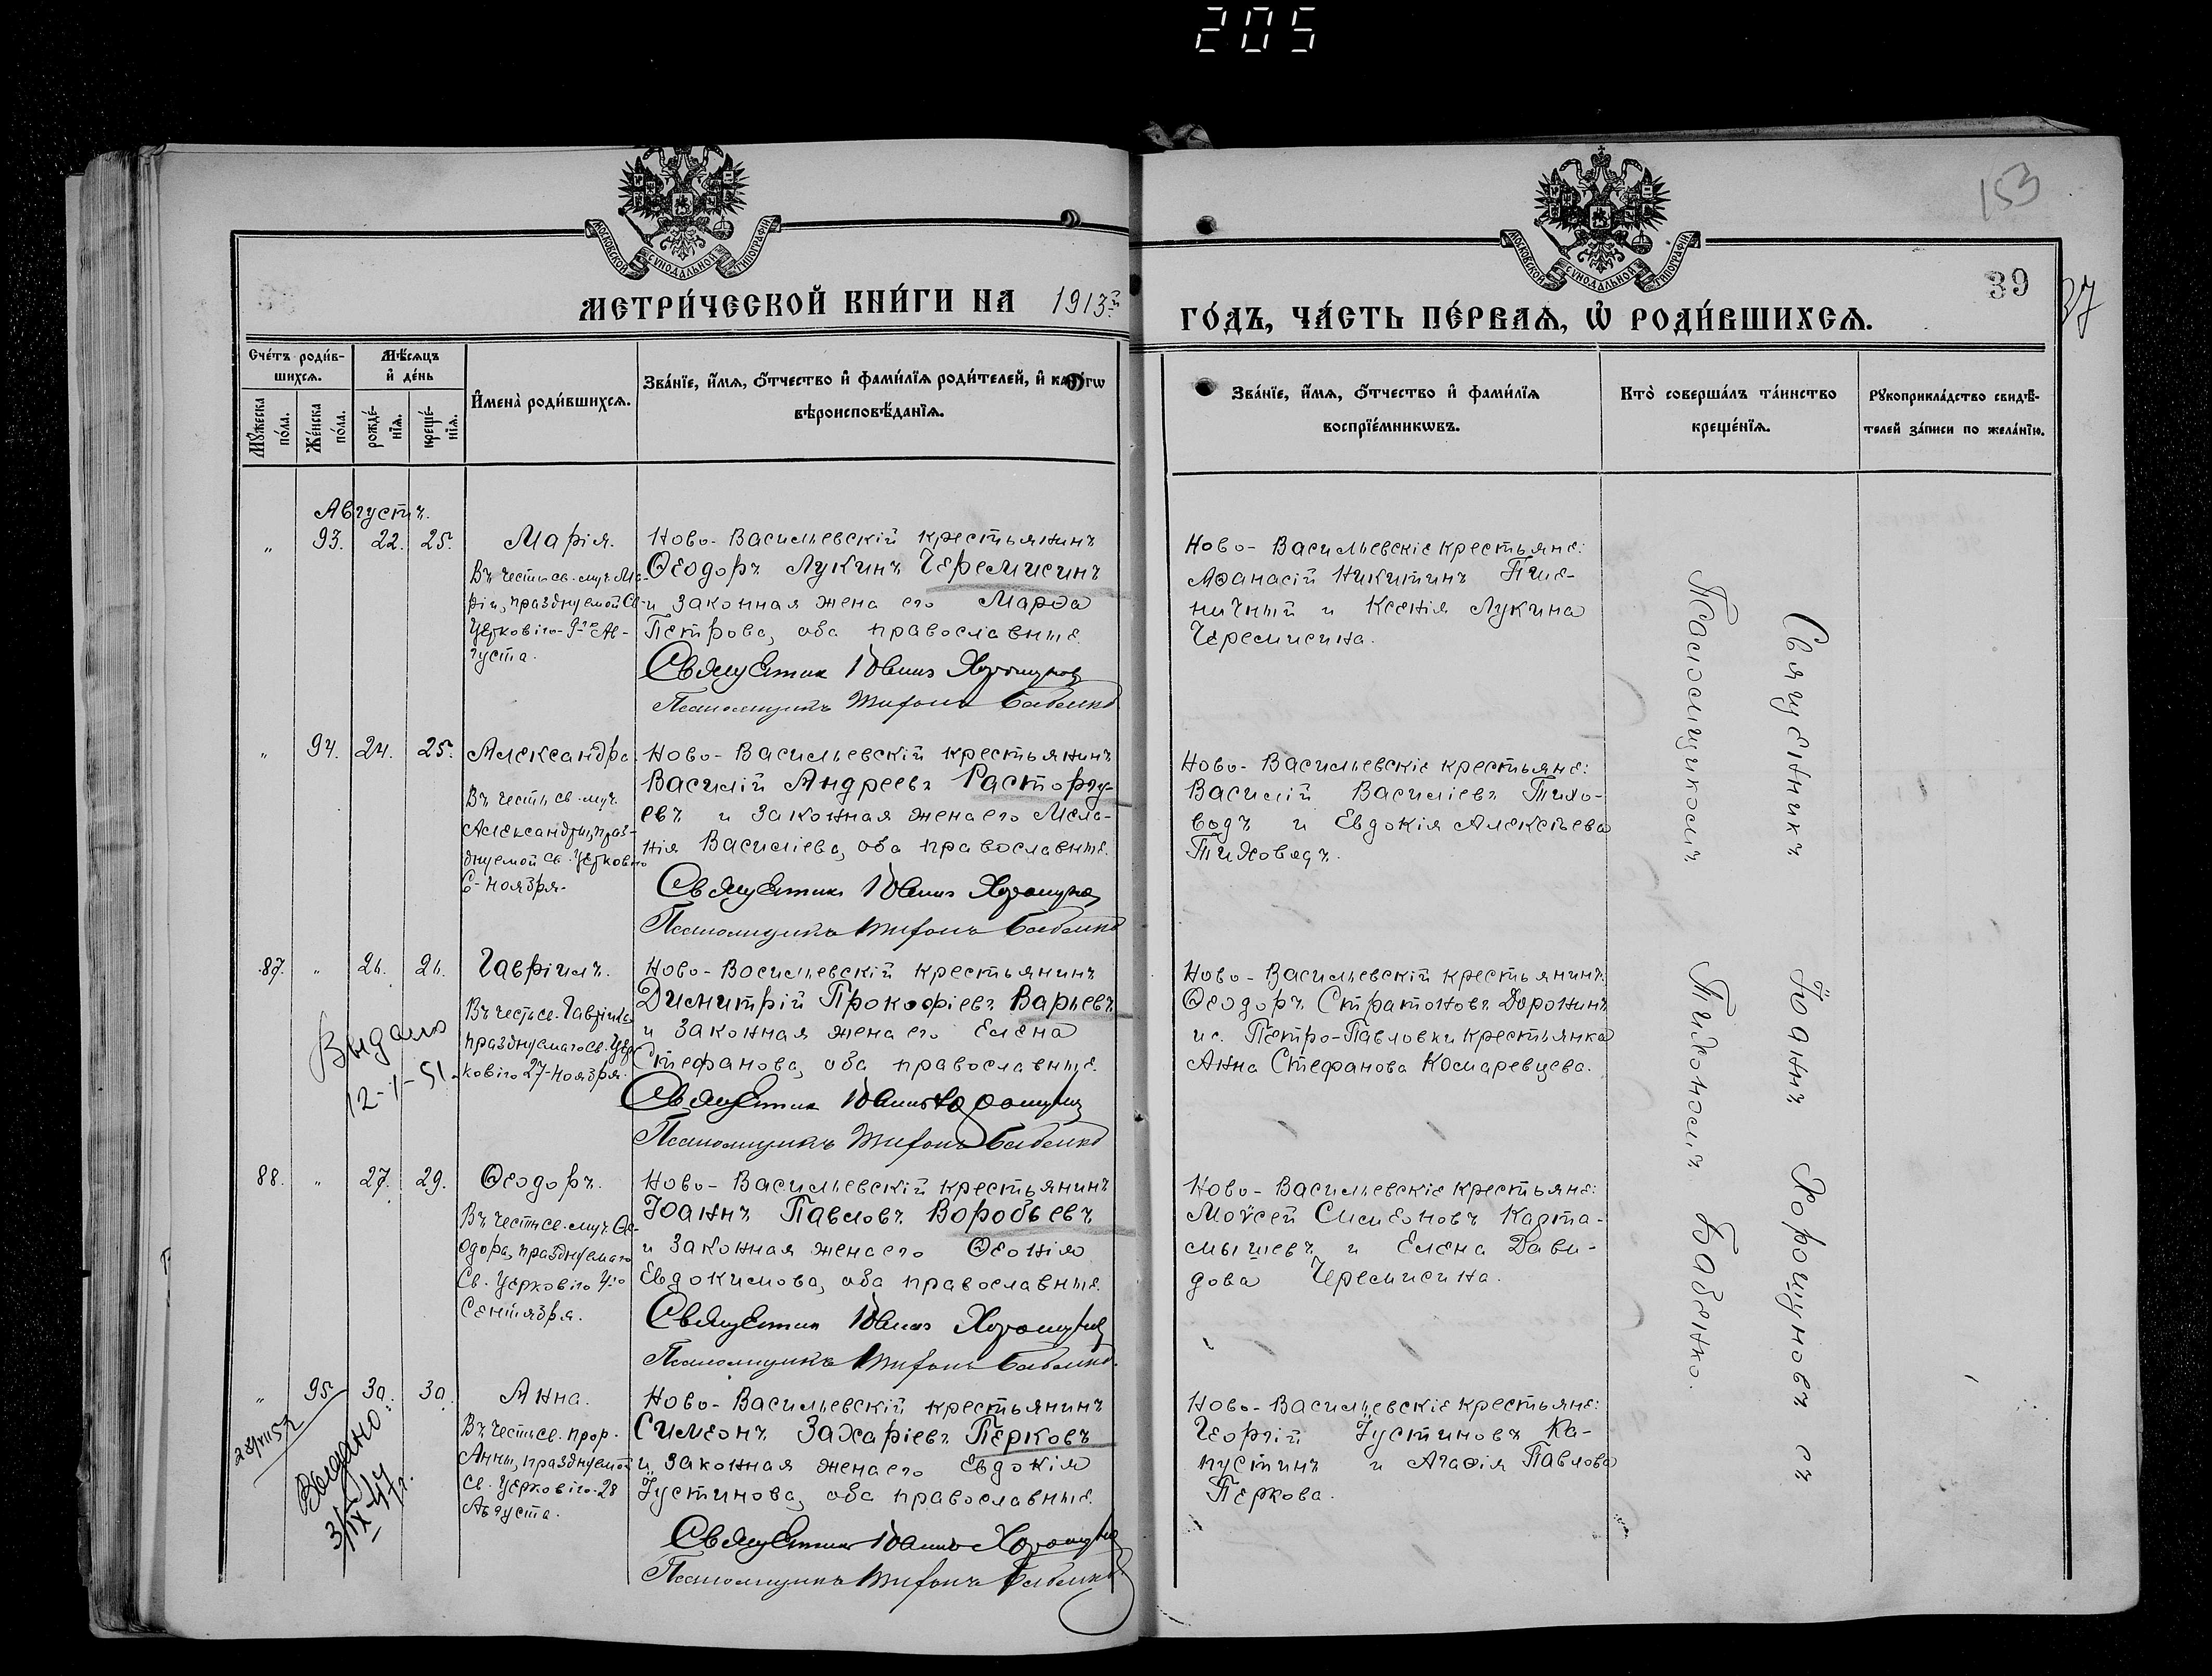 205
153
39
37
МОСКОВСКОЙ СѴНОДАЛЬНОЙ ТИПОГРАФІИ
МОСКОВСКОЙ СѴНОДАЛЬНОЙ ТИПОГРАФІИ
МЕТРИ́ЧЕСКОЙ КНИ́ГИ НА 1913й
ГО́ДЪ, ЧА́СТЬ ПЕ́РВАѦ, Ѡ҆ РОДИ́ВШИХСѦ.
Сче́тъ роди́в-
шихсѧ.
Мѣ́сѧцъ
и҆ де́нь
Мꙋ́жеска
по́ла.
Же́нска
по́ла.
рожде́-
нїѧ.
креще́-
нїѧ.
И҆мена̀ роди́вшихсѧ.
Зва́нїе, и҆́мѧ, ѻ҆́тчество и҆ фами́лїѧ роди́телей, и҆ како́гѡ
вѣроисповѣ́данїѧ.
Зва́нїе, и҆́мѧ, ѻ҆́тчество и҆ фами́лїѧ
воспрїе́мникѡвъ.
Кто̀ соверша́лъ та́инство
креще́нїѧ.
Рꙋкоприкла́дство свидѣ́-
телей за́писи по жела́нїю.
Августъ.
„ 93. 22. 25. Марія.
Въ честь св. муч. Ма-
ріи, празднуемой Св.
Церковію - 9го Ав-
густа.
Ново-Васильевскій крестьянинъ
Ѳеодоръ Лукинъ Черемисинъ
и законная жена его Марѳа
Петрова, оба православные.
Священник Іоанн Хорошунов
Псаломщикъ Тихонъ Бабенко
Ново-Васильевскіе крестьяне:
Аѳанасій Никитинъ Пше-
ничный и Ксенія Лукина
Черемисина.
„ 94. 24. 25. Александра.
Въ честь св. муч.
Александры, праз-
днуемой св. Церковію
6-ноября.
Ново-Васильевскій крестьянинъ
Василій Андреевъ Расторгу-
евъ и законная жена его Мела-
нія Василіева, оба православные.
Священник Іоанн Хорошунов
Псаломщикъ Тихонъ Бабенко
Ново-Васильевскіе крестьяне:
Василій Василіевъ Тихо-
водъ и Евдокія Алексѣева
Тиховодъ.
87. „ 24. 24. Гавріилъ.
Въ честь св. Гавріила,
празднуемаго Св. Цер-
ковію 27-ноября.
Выдано
12-1-51.
Ново-Васильевскій крестьянинъ
Димитрій Прокофіевъ Варьевъ
и законная жена его Елена
Стефанова, оба православные.
Священник Іоанн Хорошунов
Псаломщикъ Тихонъ Бабенко
Ново-Васильевскій крестьянинъ
Ѳеодоръ Стратоновъ Доронинъ
и с. Петро-Павловки крестьянка
Анна Стефанова Комаревцева.
88. „ 27. 29. Ѳеодоръ.
Въ честь св. муч. Ѳе-
одора, празднуемаго
Св. Церковію 4-го
Сентября.
Ново-Васильевскій крестьянинъ
Іоаннъ Павловъ Воробьевъ
и законная жена его Ѳеонія
Евдокимова, оба православные.
Священник Іоанн Хорошунов
Псаломщикъ Тихонъ Бабенко.
Ново-Васильевскіе крестьяне:
Моѵсей Симеоновъ Карта-
мышевъ и Елена Дави-
дова Черемисина.
„ 95. 30. 30. Анна.
Въ честь св. прор.
Анны, празднуемой
Св. Церковію - 28
Августа.
Выдано
3/IX 47г.
Ново-Васильевскій крестьянинъ
Симеонъ Захаріевъ Перковъ
и законная жена его Евдокія
Іустинова, оба православные.
Священник Іоанн Хорошунов
Псаломщикъ Тихонъ Бабенко
Ново-Васильевскіе крестьяне:
Георгій Іустиновъ Ка-
пустинъ и Агаѳія Павлова
Перкова.
Священникъ Іоаннъ Хорошуновъ съ
Псаломщикомъ Тихономъ Бабенко.